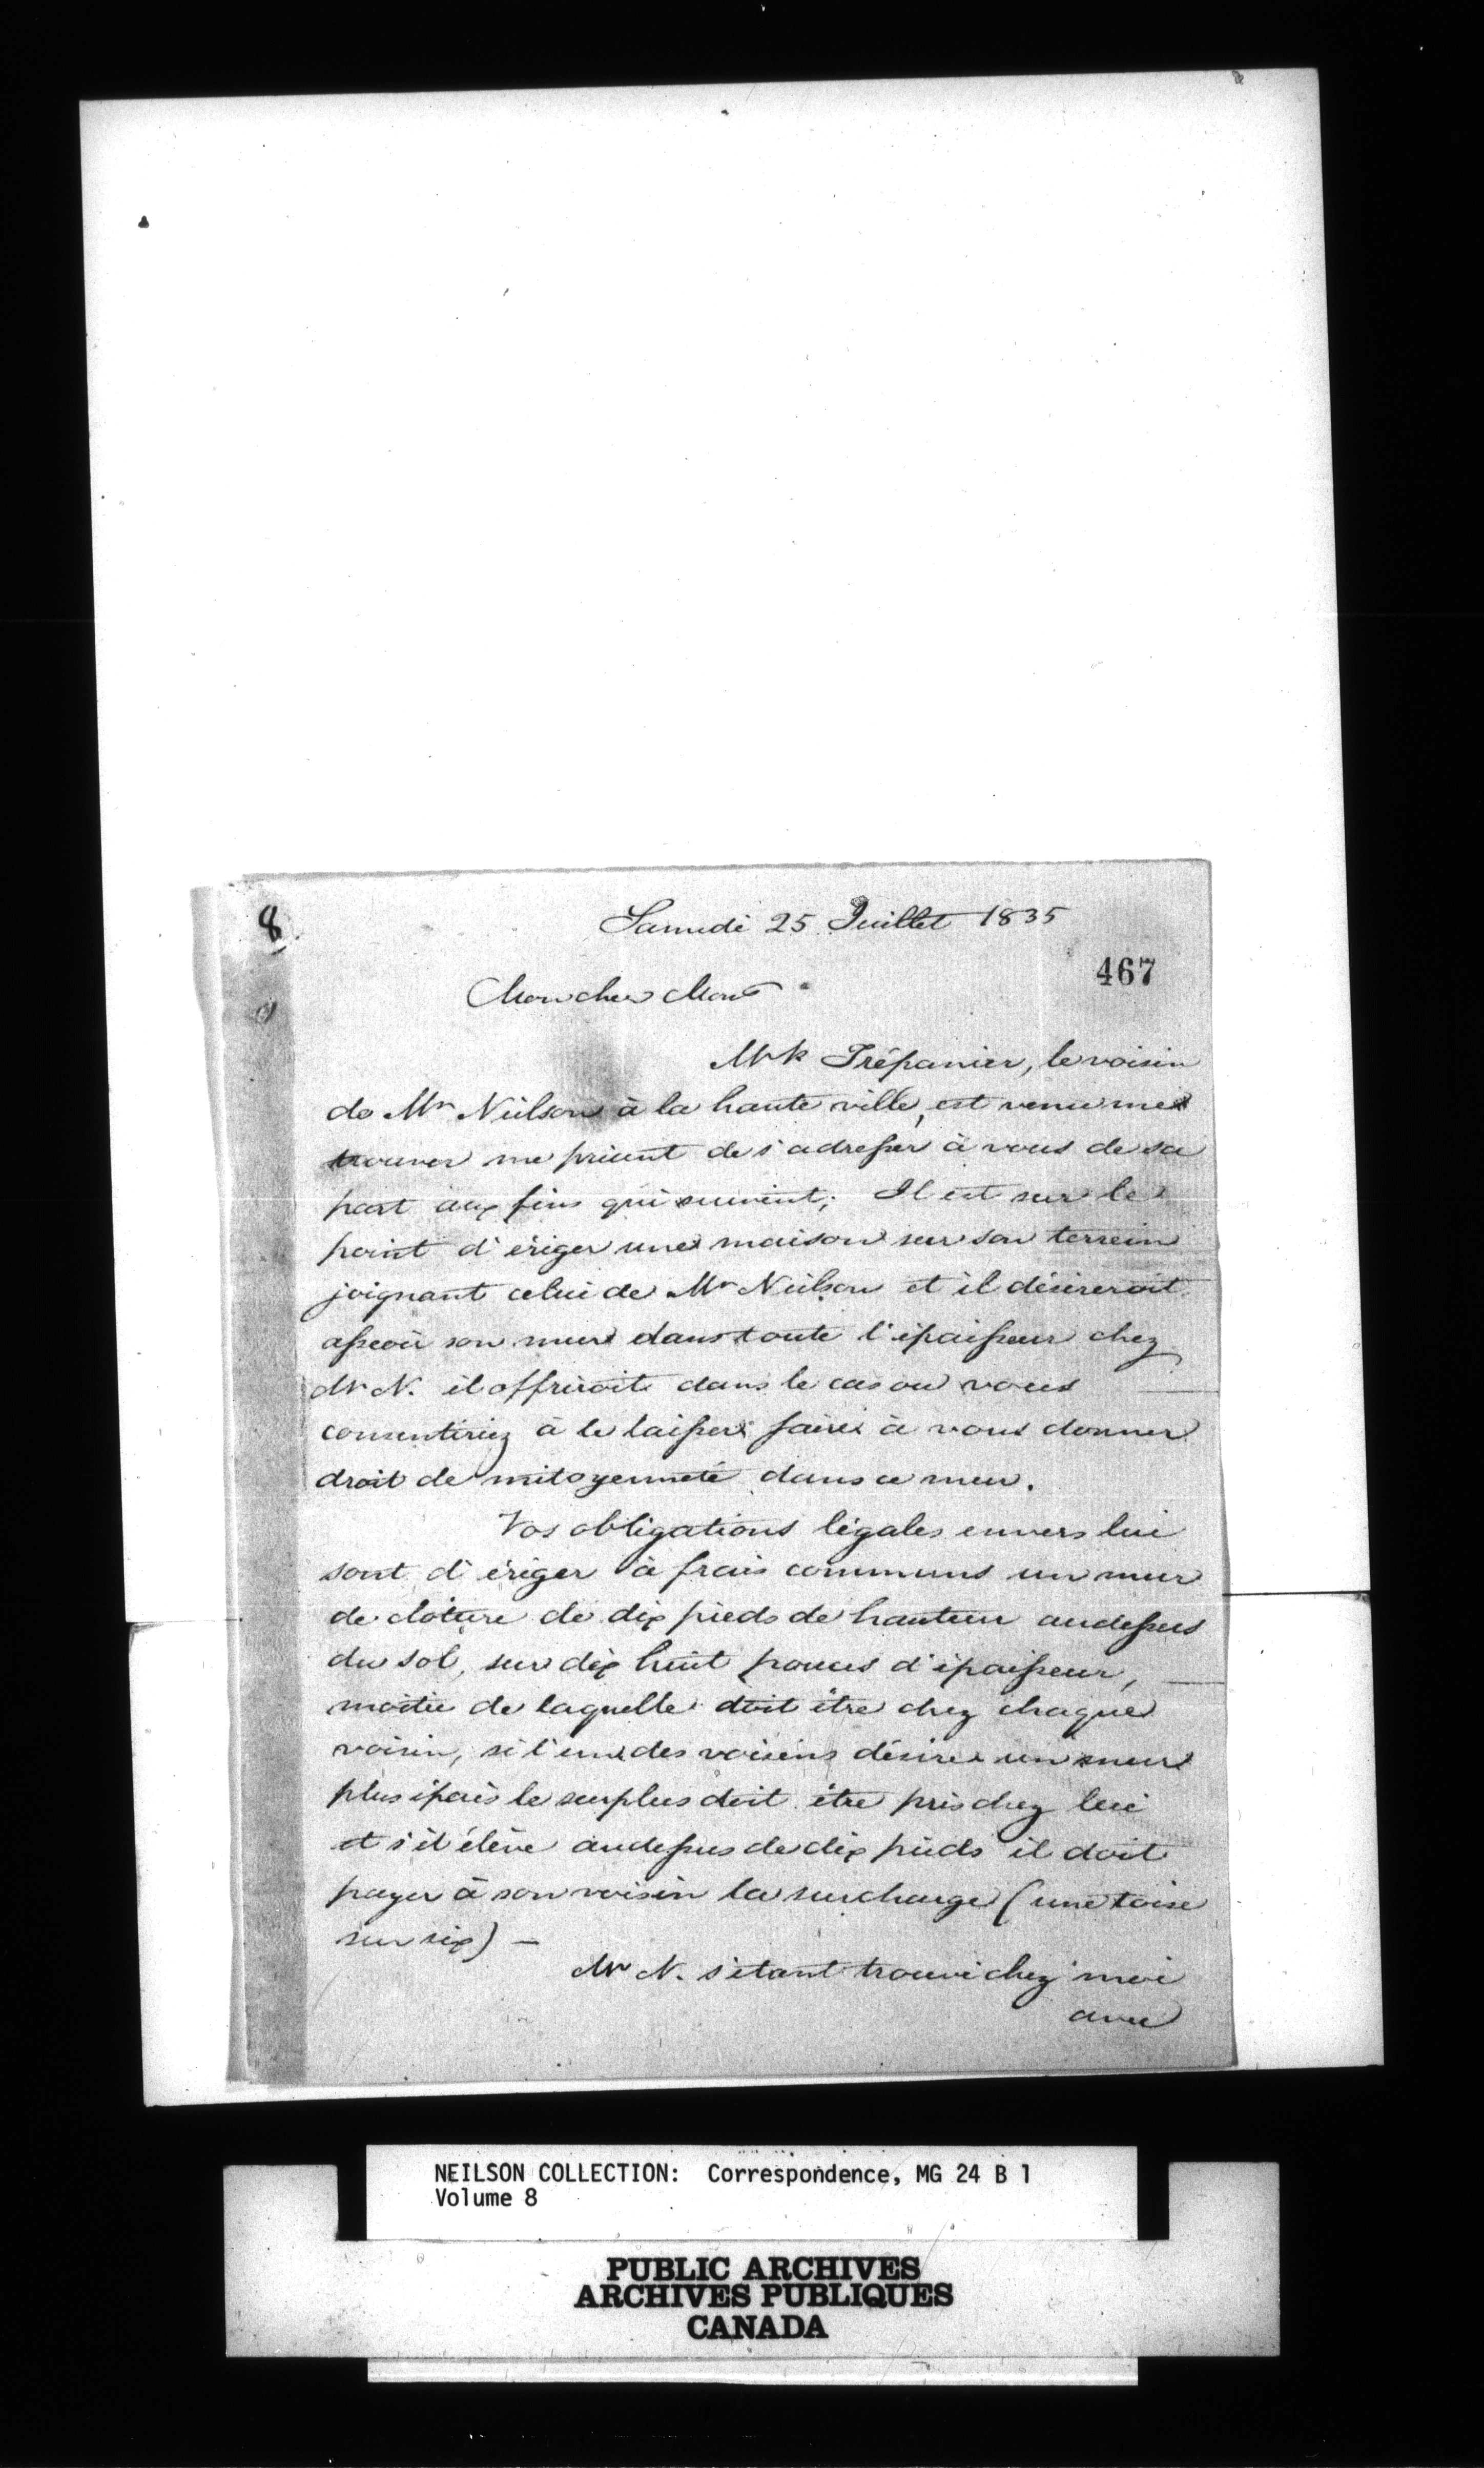 8
Samedi 25 Juillet 1835
467
Mon cher Mons
Trépanier, le voisin
de Mr Neilson à la haute ville, est venu me
trouver me priant de s'adresser à vous de sa
part aux fins qui suivent; Il est sur le
point d'ériger une maison sur son terrein
joignant celui de Mr Neilson et il désireroit
asseoir son mur dans toute l'épaisseur chez
Mr N. il offriroit dans le cas ou vous
consentiriez à le laisser faire à vous donner
droit de mitoyenneté dans ce mur.
Vos obligations légales envers lui
sont d'ériger à frais communs un mur
de clôture de dix pieds de hauteur audessus
du sol, sur dix huit pouces d'épaisseur,
moitié de laquelle doit être chez chaque
voisin, si l'un des voisins désire un mur
plus épais le surplus doit être pris chez lui
et s'il élève audessus de dix pieds il doit
payer à son voisin la surcharge (une toise
sur six) —
Mr N. s'étant trouvé chez moi
avec
NEILSON COLLECTION: Correspondence, MG 24 B 1
Volume 8
PUBLIC ARCHIVES
ARCHIVES PUBLIQUES
CANADA